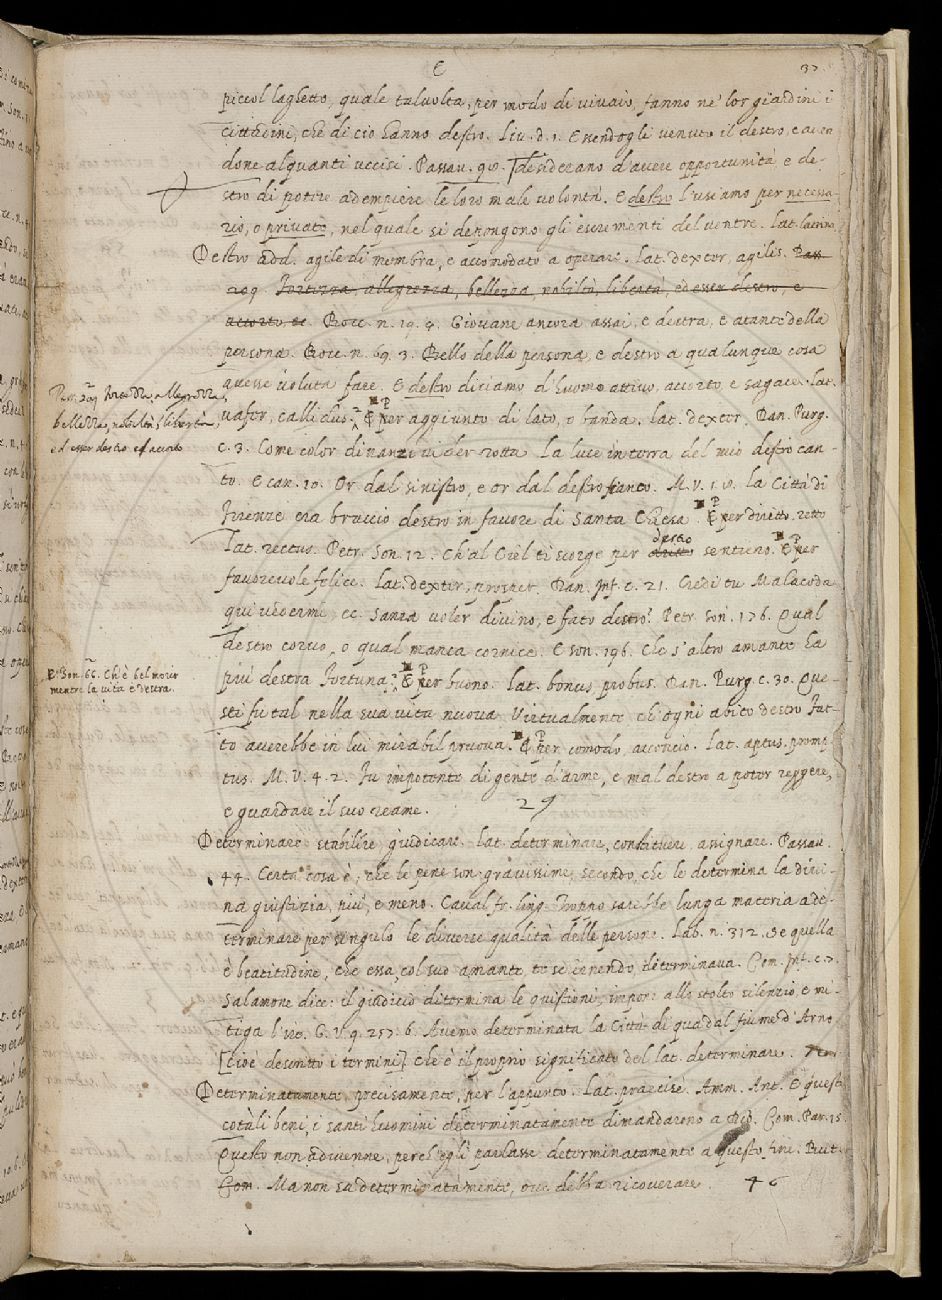 E
37
piccol laghetto, quale talvolta, per modo di vivaio, fanno ne' lor giardini i
Cittadini, che di ciò hanno destro. Liv. d. 1. Essendogli venuto il destro, e aven
done alquanti uccisi. Passav. 90. desiderano d'avere opportunità e de-
stro di potere adempiere le loro male volontà. E destro l'usiamo per necessa-
rio, o privato, nel quale si depongono gli escrementi del ventre. Lat. latrina.
Destro add. agile di membra, e accomodato a operare. Lat. dexter, agilis. Pass
209 Fortezza, allegrezza, bellezza, nobiltà, libertà, ed esser destro, e
accorto ec. Bocc. n. 19. 4. Giovane ancora assai, e destra, e atante della
persona. Bocc. n. 69. 3. Bello della persona, e destro a qualunque cosa
avesse voluta fare. E destro diciamo d'huomo attivo, accorto, e sagace. Lat.
Pass. 209 Fortezza, allegrezza,
bellezza, nobiltà, libertà,
ed esser destro ed accorto
vafer, callidus. E per aggiunto di lato, o banda. Lat. dexter. Dan. Purg.
c. 3. Come color dinanzi vider rotta La luce in terra del mio destro can-
to. E can. 10. Or dal sinistro, e or dal destro fianco. M. V. 1. la Città di
Firenze era braccio destro in favore di Santa Chiesa. E per diretto, retto
Lat. rectus. Petr. Son. 12. Ch'al Ciel ti scorge per destro sentiero. E per
favorevole felice. Lat. dexter, prosper. Dan. Inf. c. 21. Credi tu Malacoda
qui vedermi, ec. Sanza voler divino, e fato destro? Petr. Son. 176. Qual
destro corvo, o qual manca cornice. E son. 196. Che s'altro amante ha
E Son. 66. Ch'è bel morir
mentre la vita è destra.
più destra fortuna. E per buono. Lat. bonus probus. Dan. Purg. c. 30. Que-
sti fu tal nella sua vita nuova Virtualmente ch'ogni abito destro Fat-
to averebbe in lui mirabil pruova. E per comodo acconcio. Lat. aptus, promp
tus. M. V. 4. 2. Fu impotente di gente d'arme, e mal destro a poter reggere,
e guardare il suo reame. 29
Determinare stabilire giudicare. Lat. determinare, constituere assignare. Passav.
44. Certa cosa è, che le pene son gravissime, secondo, che le determina la divi-
na giustizia, più, e meno. Caval. fr. ling. Troppo sarebbe lunga materia a de-
terminare per singulo le diverse qualità delle persone. Lab. n. 312. Se quella
è beatitudine, che essa, col suo amante, te schernendo, determinava. Com. Inf. c. 7.
Salamone dice: il giudicio determina le quistioni, impone allo stolto silenzio, e mi-
tiga l'ire. G. V. 9. 257. 6. Avemo determinata la Città di qua dal fiume d'Arno
[Cioè descritto i termini] Che è il proprio significato del lat. determinare.
Determinatamente precisamente, per l'appunto. Lat. praecisè. Amm. Ant. E questi
cotali beni, i santi huomini determinatamente dimandarono a Dio. Com. Par. 15.
Questo non advienne, perch'egli parlasse determinatamente a questo fine. But.
Com. Ma non sa determinatamente, ove debba ricoverare. 46